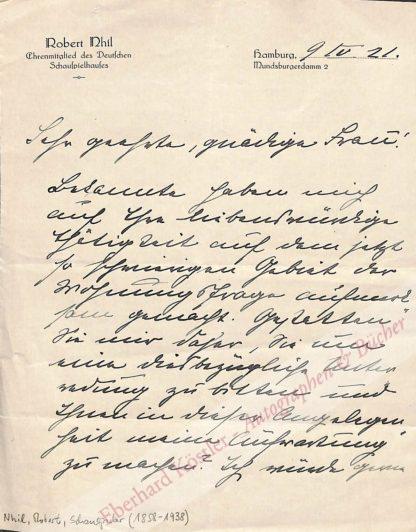 Robert Nhil
Ehrenmitglied des Deutschen
Schauspielhauses
Hamburg, 9 IV 21.
Mundsburgerdamm 2
Sehr geehrte, gnädige Frau!
Bekannte haben mich
auf Ihre liebenswürdige
Thätigkeit auf dem jetzt
so schwierigen Gebiet der
Wohnungsfrage aufmerk
sam gemacht. Gestatten
Sie mir daher, Sie um
eine diesbezügliche Unter
redung zu bitten und
Ihnen in dieser Angelegen
heit meine Aufwartung
zu machen? Ich würde gerne
Eberhard Köstler Autographen & Bücher
Nhil, Robert, Schauspieler (1858-1938)